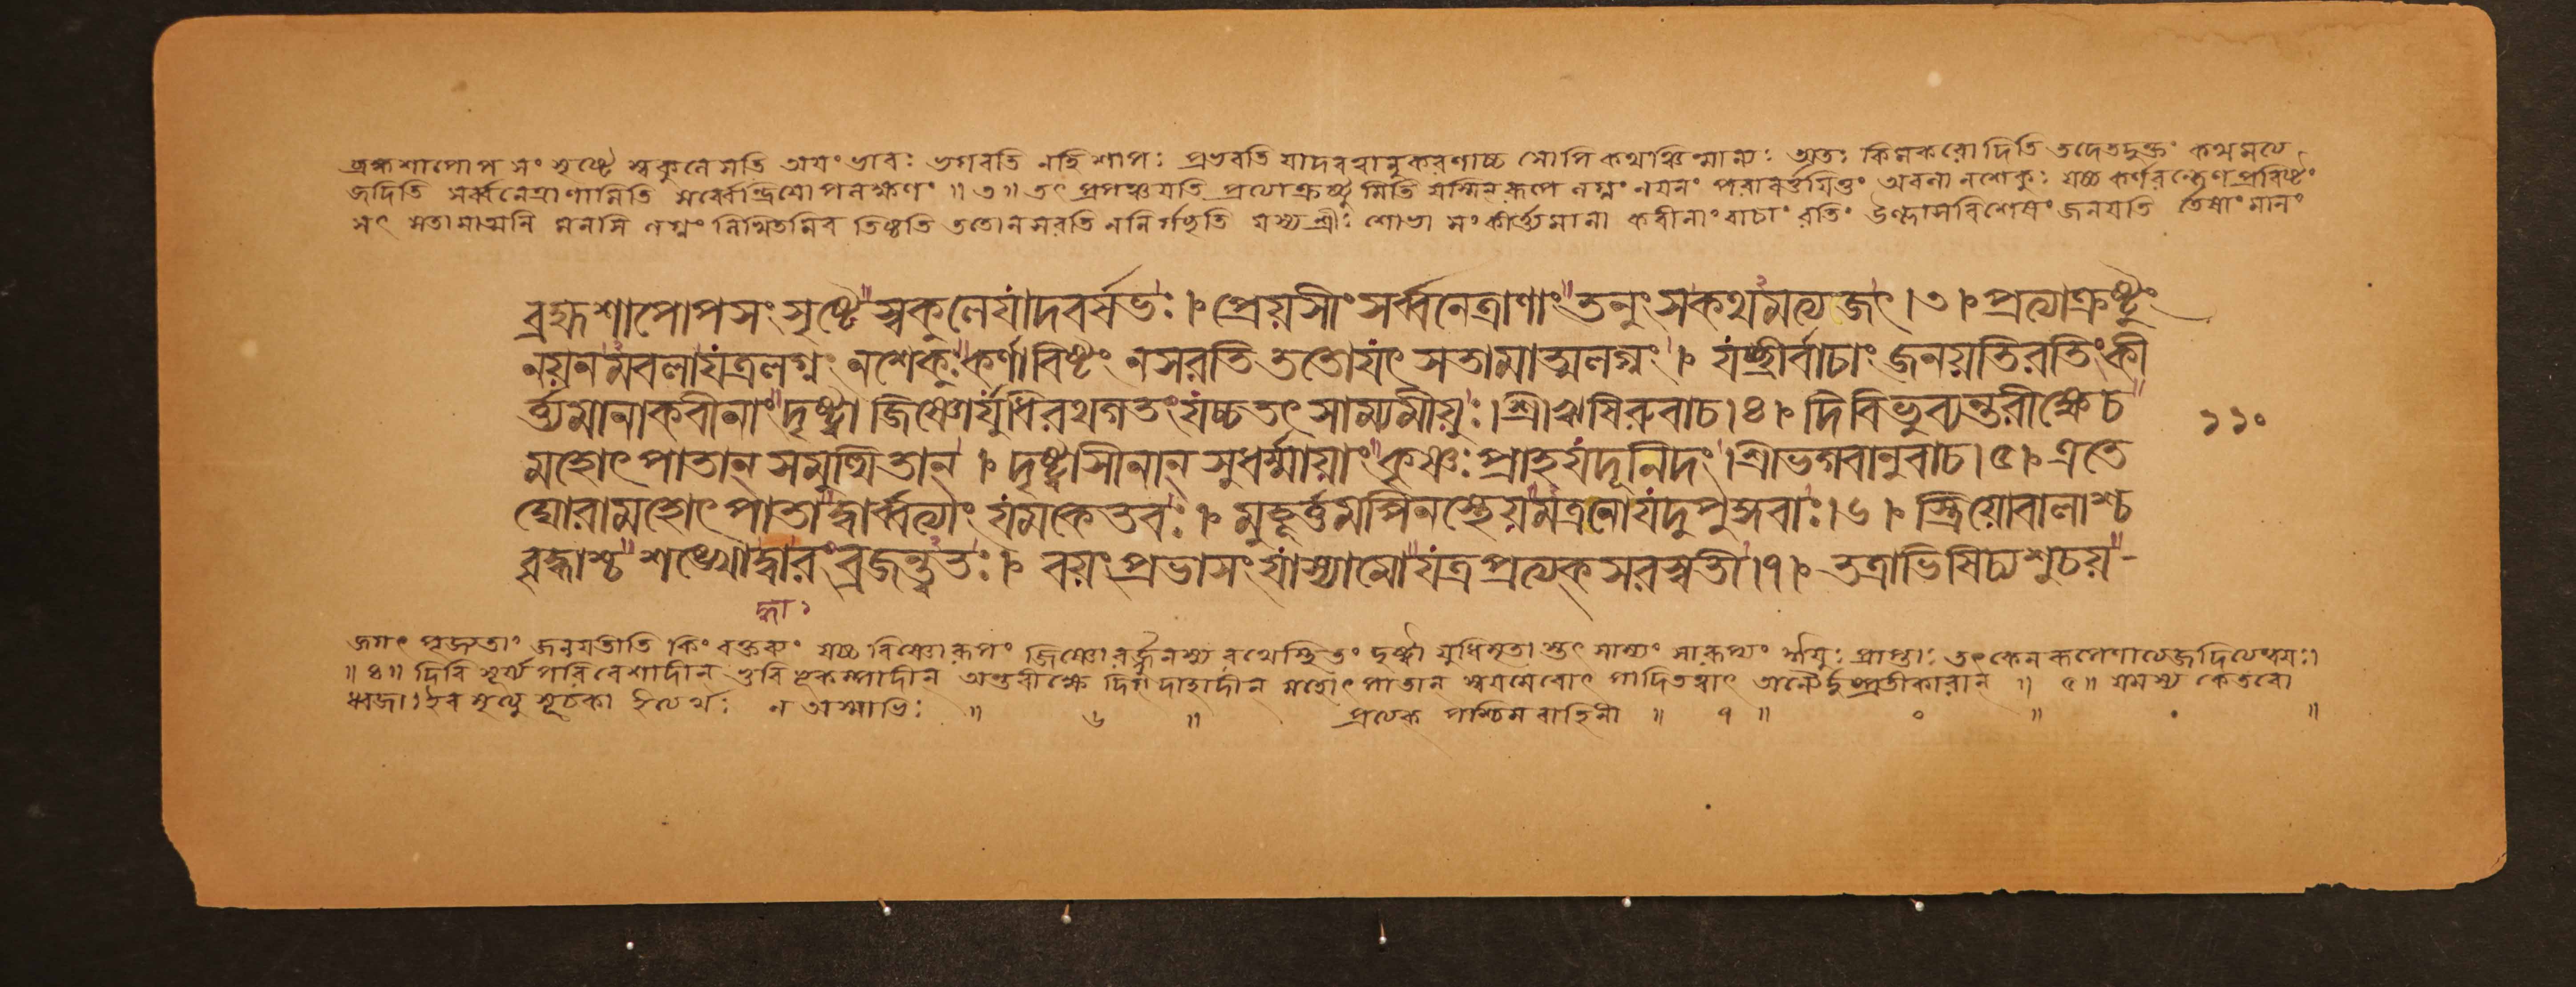 ব্রহ্মশাপোপসংসৃষ্টে স্বকুলে সতি অয়ং ভাবঃ ভগবতি নহি শাপঃ প্রভবতি যাদববানুকরণাচ্চ সোপি কথঞ্চিন্মান্যঃ অতঃ কিন্নকরোদিতি তদেতদুক্তং কথমত্য
জদিতি সর্ব্বনেত্রাণামিতি সর্ব্বেন্দ্রিয়োপলক্ষণং ॥ ৩ ॥ তৎ প্রপঞ্চয়তি প্রত্যাক্রষ্টুমিতি যস্মিন্ রূপে লগ্নং নয়নং পরাবর্ত্তয়িতুং অবলা নশেকুঃ যচ্চ কর্ণরন্ধ্রেণ প্রবিষ্টং
সৎ সতামাত্মনি মনসি লগ্নং লিখিতমিব তিষ্ঠতি ততো ন সরতি ননির্গচ্ছতি যস্য শ্রীঃ শোভা সংকীর্ত্ত্যমানা কবীনাং বাচাং রতিং উল্লাসবিশেষং জনয়তি তেষাং মানং
ব্রহ্মশাপোপসংসৃষ্টে স্বকুলেযাদবর্ষভঃ । প্রেয়সীং সর্ব্বনেত্রাণাং তনুং সকথমত্যজৎ । ৩ । প্রত্যাক্রষ্টুং
নয়নমবলাযত্রলগ্নং নশেকুঃ কর্ণাবিষ্টং নসরতি ততোযৎ সতামাত্মলগ্নং । যচ্ছ্রীর্বাচাং জনয়তিরতিংকী
র্ত্ত্যমানাকবীনাং দৃষ্ট্বা জিষ্ণোর্যুধিরথগতং যচ্চতৎ সাম্যমীয়ুঃ । শ্রীঋষিরুবাচ । ৪ । দিবিভুব্যন্তরীক্ষেচ
মহোৎপাতান্ সমুত্থিতান্ । দৃষ্ট্বাসীনান্ সুধর্ম্মায়াং কৃষ্ণঃ প্রাহযদূনিদং । শ্রীভগবানুবাচ । ৫ । এতে
ঘোরামহোৎপাতা দ্বার্ব্বত্যাং যমকেতবঃ । মুহূর্ত্তমপিনস্থেয়মত্রনোযদুপুঙ্গবাঃ । ৬ । স্ত্রিয়োবালাশ্চ
বৃদ্ধাশ্চ শঙ্খোদ্ধারং ব্রজন্ত্বিতঃ । বয়ং প্রভাসং যাস্যামোযত্রপ্রত্যক্ সরস্বতী । ৭ । তত্রাভিষিচ্যশুচয়
১১০
দ্ধা ১
জগৎ পূজ্যতাং জনয়তীতি কিং বক্তব্যং যচ্চ বিষ্ণোরূপং জিষ্ণোরর্জ্জুনস্য রথেস্থিতং দৃষ্ট্বা যুধিমৃতা স্তৎ সাম্যং সারূপ্যং ঈয়ুঃ প্রাপ্তাঃ তৎ কেন ক্রমেণাত্যজদিত্যন্বয়ঃ ।
॥ ৪ ॥ দিবি সূর্য্যপরিবেশাদীন্ ভুবি ভূকম্পাদীন্ অন্তরীক্ষে দিগ্দাহাদীন্ মহোৎপাতান্ স্বয়মেবোৎপাদিতত্বাৎ অন্যৈর্দুষ্প্রতীকারান্ ॥ ৫ ॥ যমস্য কেতবো
ধ্বজা । ইব মৃত্যু সূচকা ইত্যর্থঃ ন অস্মাভিঃ ॥ ৬ ॥ প্রত্যক্ পশ্চিম বাহিনী ॥ ৭ ॥ ০ ॥ ॥